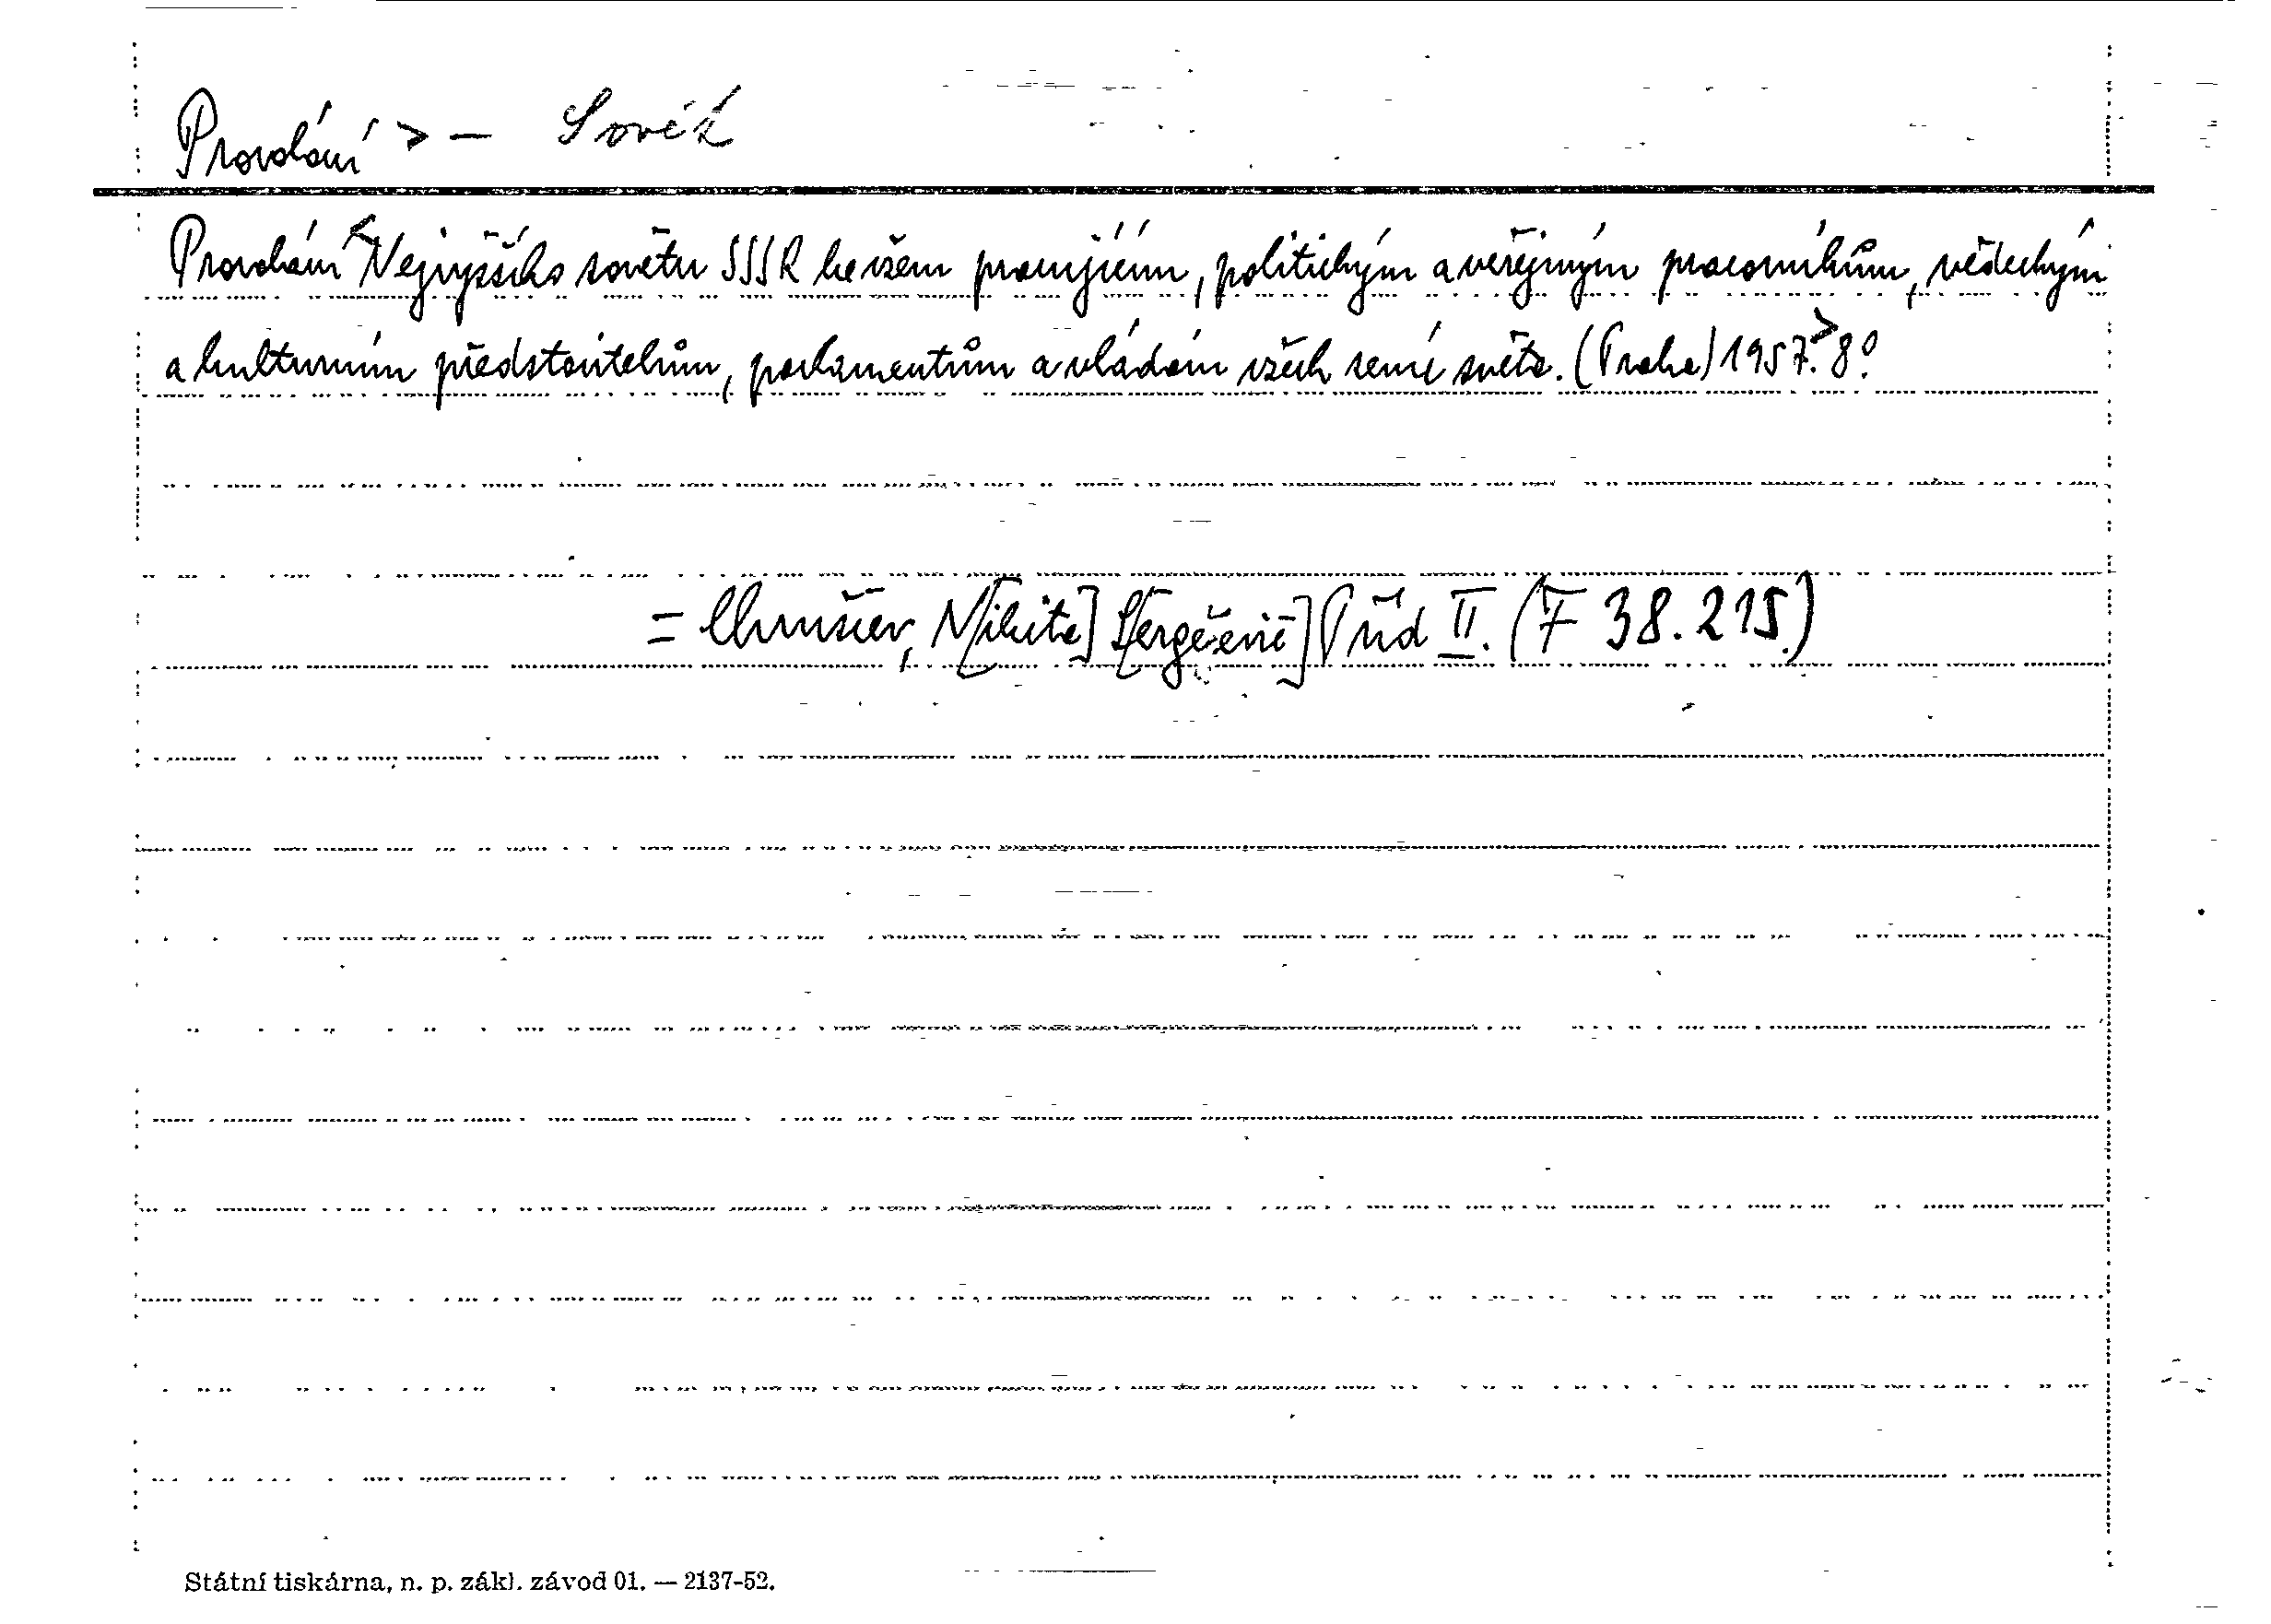 Provolání > — Sovět
Provolání <Nejvyššího sovětu SSSR ke všem pracujícím, politickým a veřejným pracovníkům, vědeckým
a kulturním představitelům, parlamentům a vládám všech zemí světa. (Praha) 1957.> 8°.
= Chruščev, N[ikita] S[ergěevič] Př úd II. (F 38.215.)
Státní tiskárna, n. p. zákl. závod 01. — 2137-52.